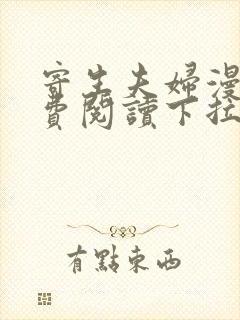 寄生夫婦漫
費閱讀下拉
有點東西